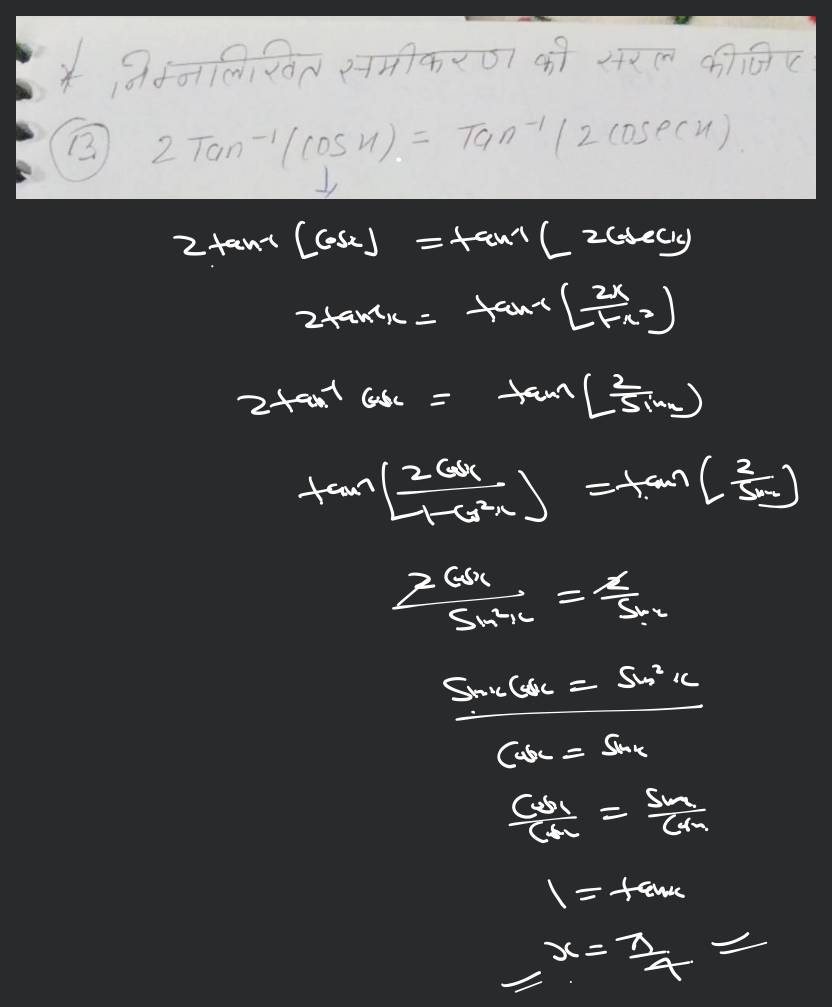 * निम्नलिखित समीकरण को सरल कीजिए
13. 2 Tan⁻¹(cos x) = Tan⁻¹(2 cosec x).
2 tan⁻¹ [cos x] = tan⁻¹ [2 cosec x]
2 tan⁻¹ x = tan⁻¹ [2x / 1-x²]
2 tan⁻¹ cos x = tan⁻¹ [2 / sin x]
tan⁻¹ [2 cos x / 1-cos² x] = tan⁻¹ [2 / sin x]
2 cos x / sin² x = 2 / sin x
sin x cos x = sin² x
cos x = sin x
cos x / cos x = sin x / cos x
1 = tan x
x = π / 4